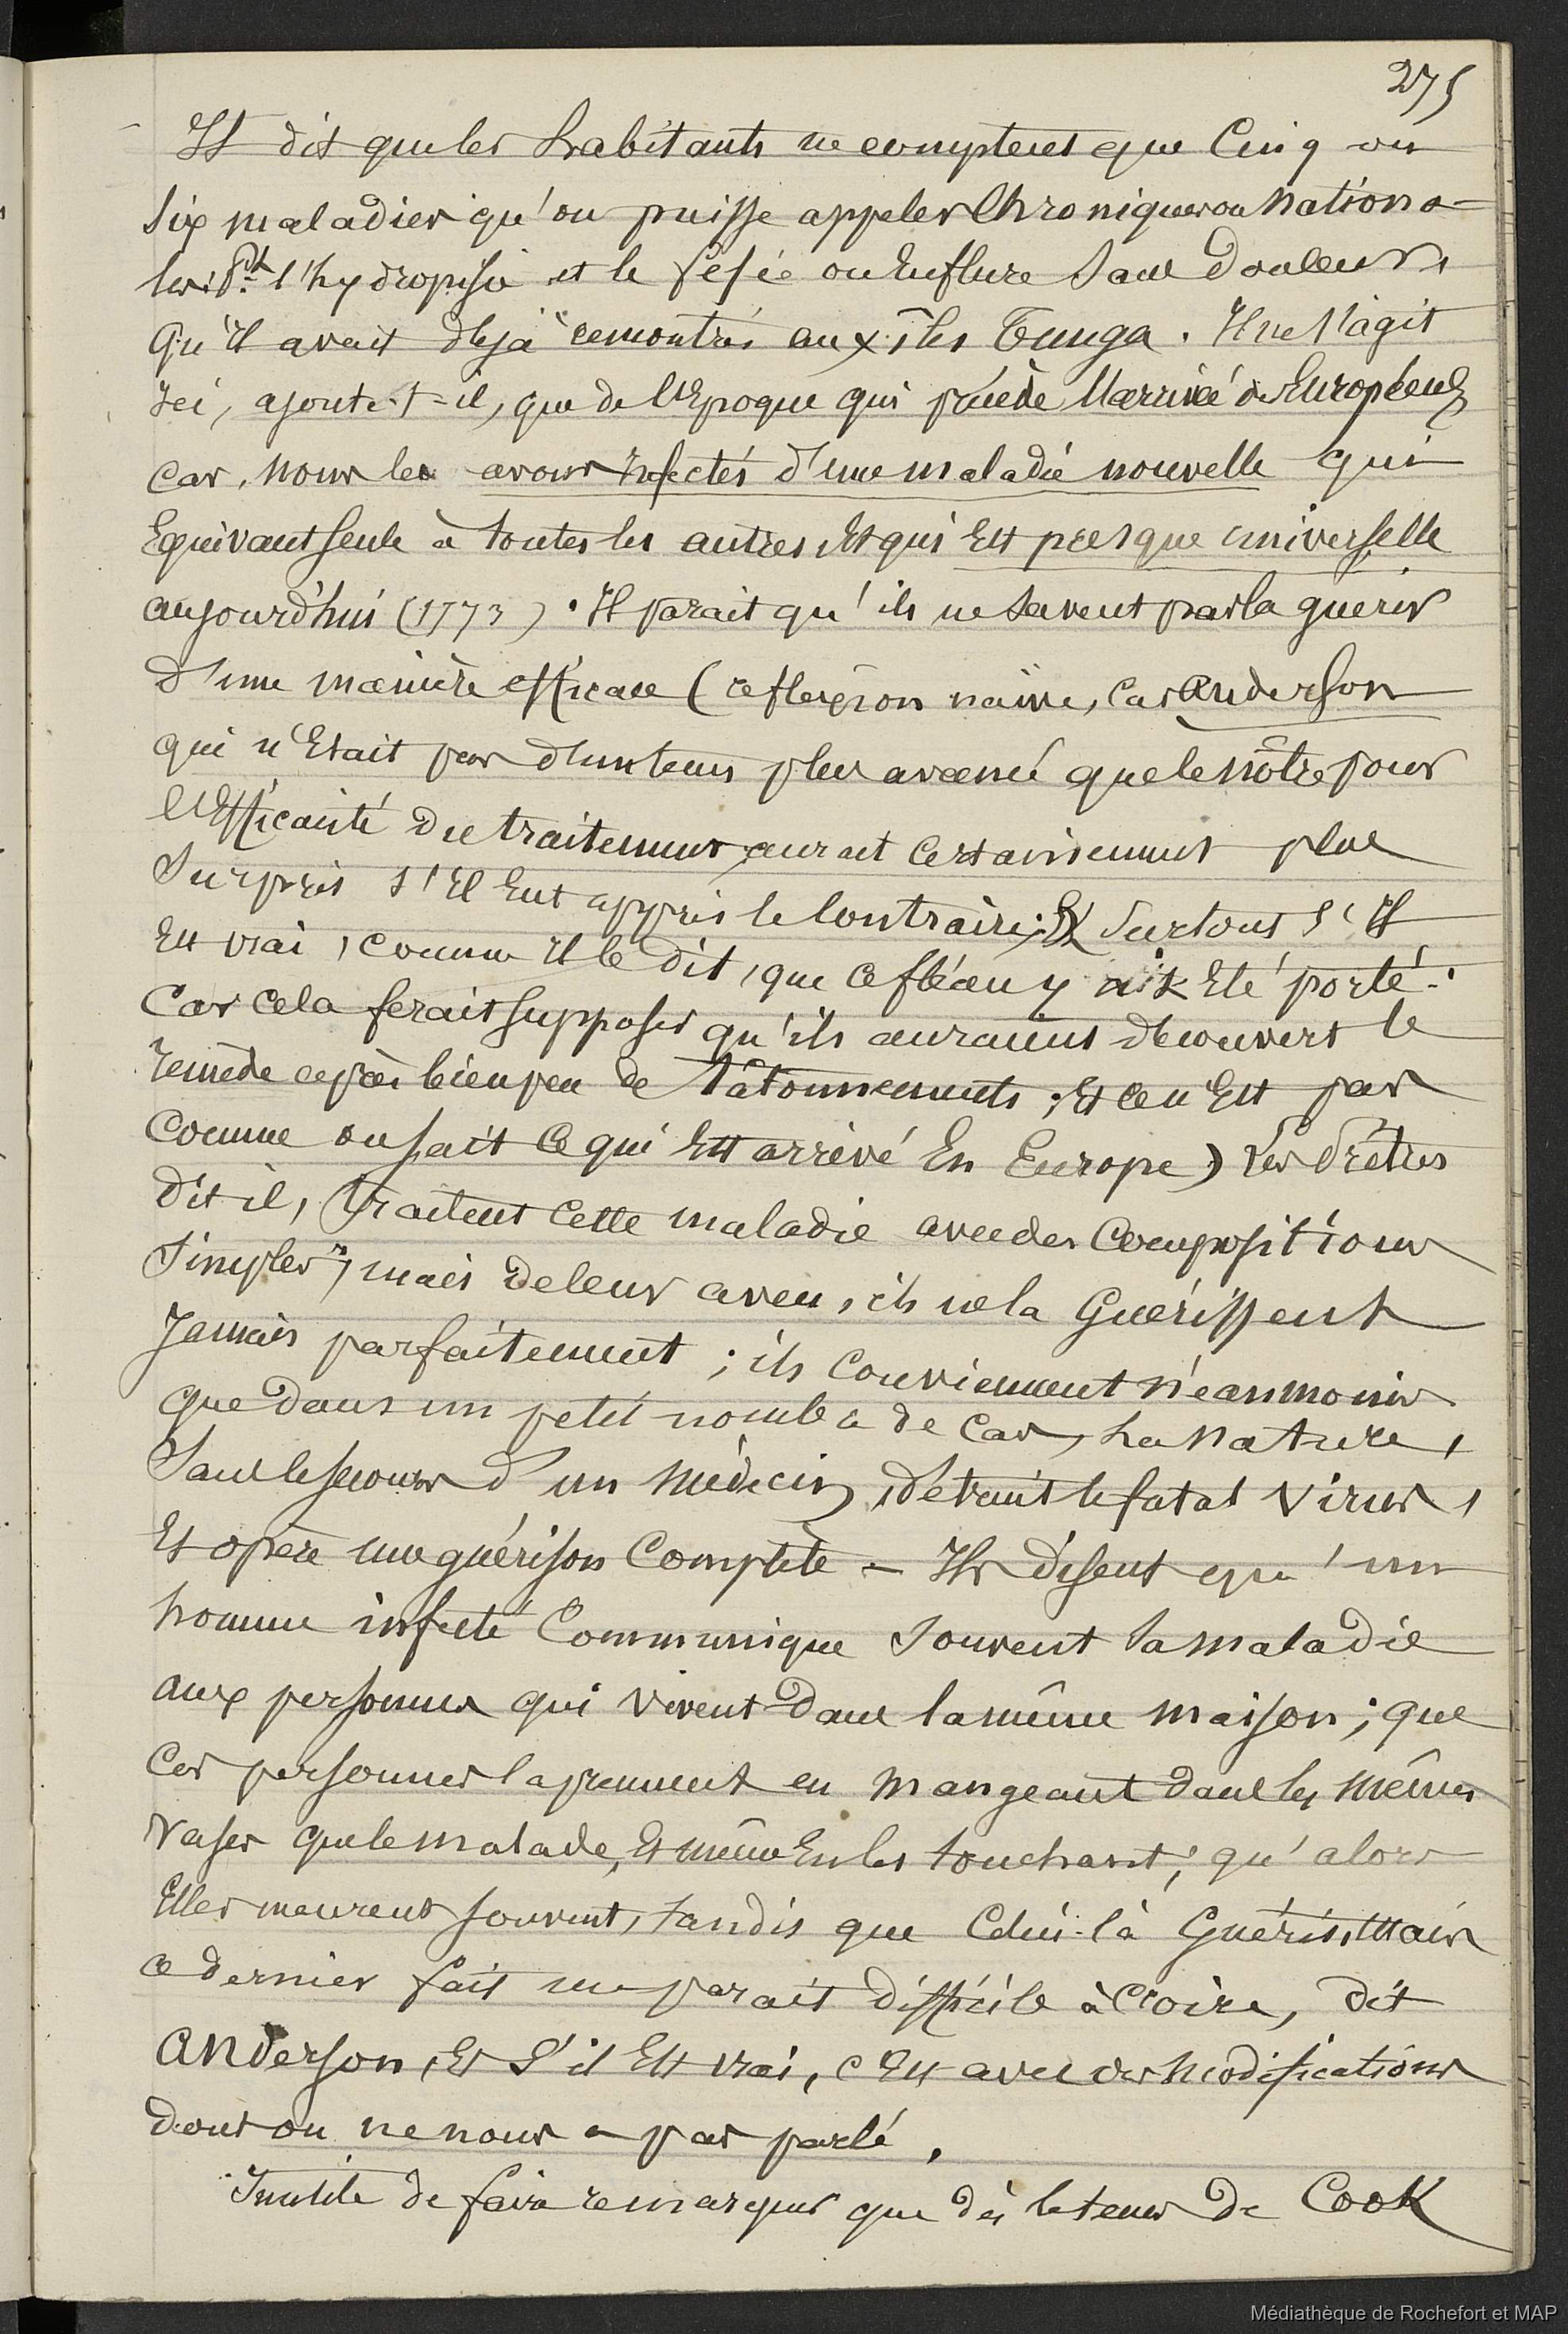 275
Il dit que les habitants ne comptent que Cinq ou
six maladies qu'on puisse appeler Chroniques ou nationa-
les: Pt. l'hydropisie et le féfée ou Enflure Sans douleurs,
qu'il avait deja remontrés aux îles Tunga. Il ne s'agit
Ici, ajoute-t-il, que de l'Epoque qui précède l'arrivée des Européens
car, nous les avons Infectés d'une maladie nouvelle qui
Equivaut seule à toutes les autres, Et qui Est presque universelle
aujourd'hui (1773). Il parait qu'ils ne savent pas la guérir
d'une manière efficace (reflexion naïve, car Anderson
qui n'Etait pas d'un tems plus avancé que le nôtre pour
l'Efficacité du traitement, aurait certainement plus
Surpris s'Il Eut appris le Contraire; & surtout s'Il
Est vrai, comme Il le dit, que ce fléau y ait Eté porté:
Car cela ferait supposer qu'ils auraient découvert le
remède après bien peu de tâtonnements; Et ce n'Est pas
comme on sait ce qui Est arrivé En Europe) Les Prêtres
dit il, traitent cette maladie avec des Compositions
simples; mais de leur aveu, ils ne la Guérissent
Jamais parfaitement; ils conviennent néanmoins
que dans un petit nombre de cas, La Nature,
Sans le secours d'un Médecin, détruit le fatal Virus,
Et opère une guérison Complète - Ils disent qu'un
homme infecté Communique souvent sa maladie
aux personnes qui vivent dans la même maison; que
Ces personnes la prennent en mangeant dans les mêmes
Vases que le malade, Et même En les touchant; qu'alors
Elles meurent souvent, tandis que Celui-là Guérit. Mais
ce dernier fait me parait difficile à croire, dit
Anderson, Et S'il Est vrai, c'Est avec des Modifications
dont on ne nous a pas parlé.
Inutile de faire remarquer que dès le tems de Cook
Médiathèque de Rochefort et MAP